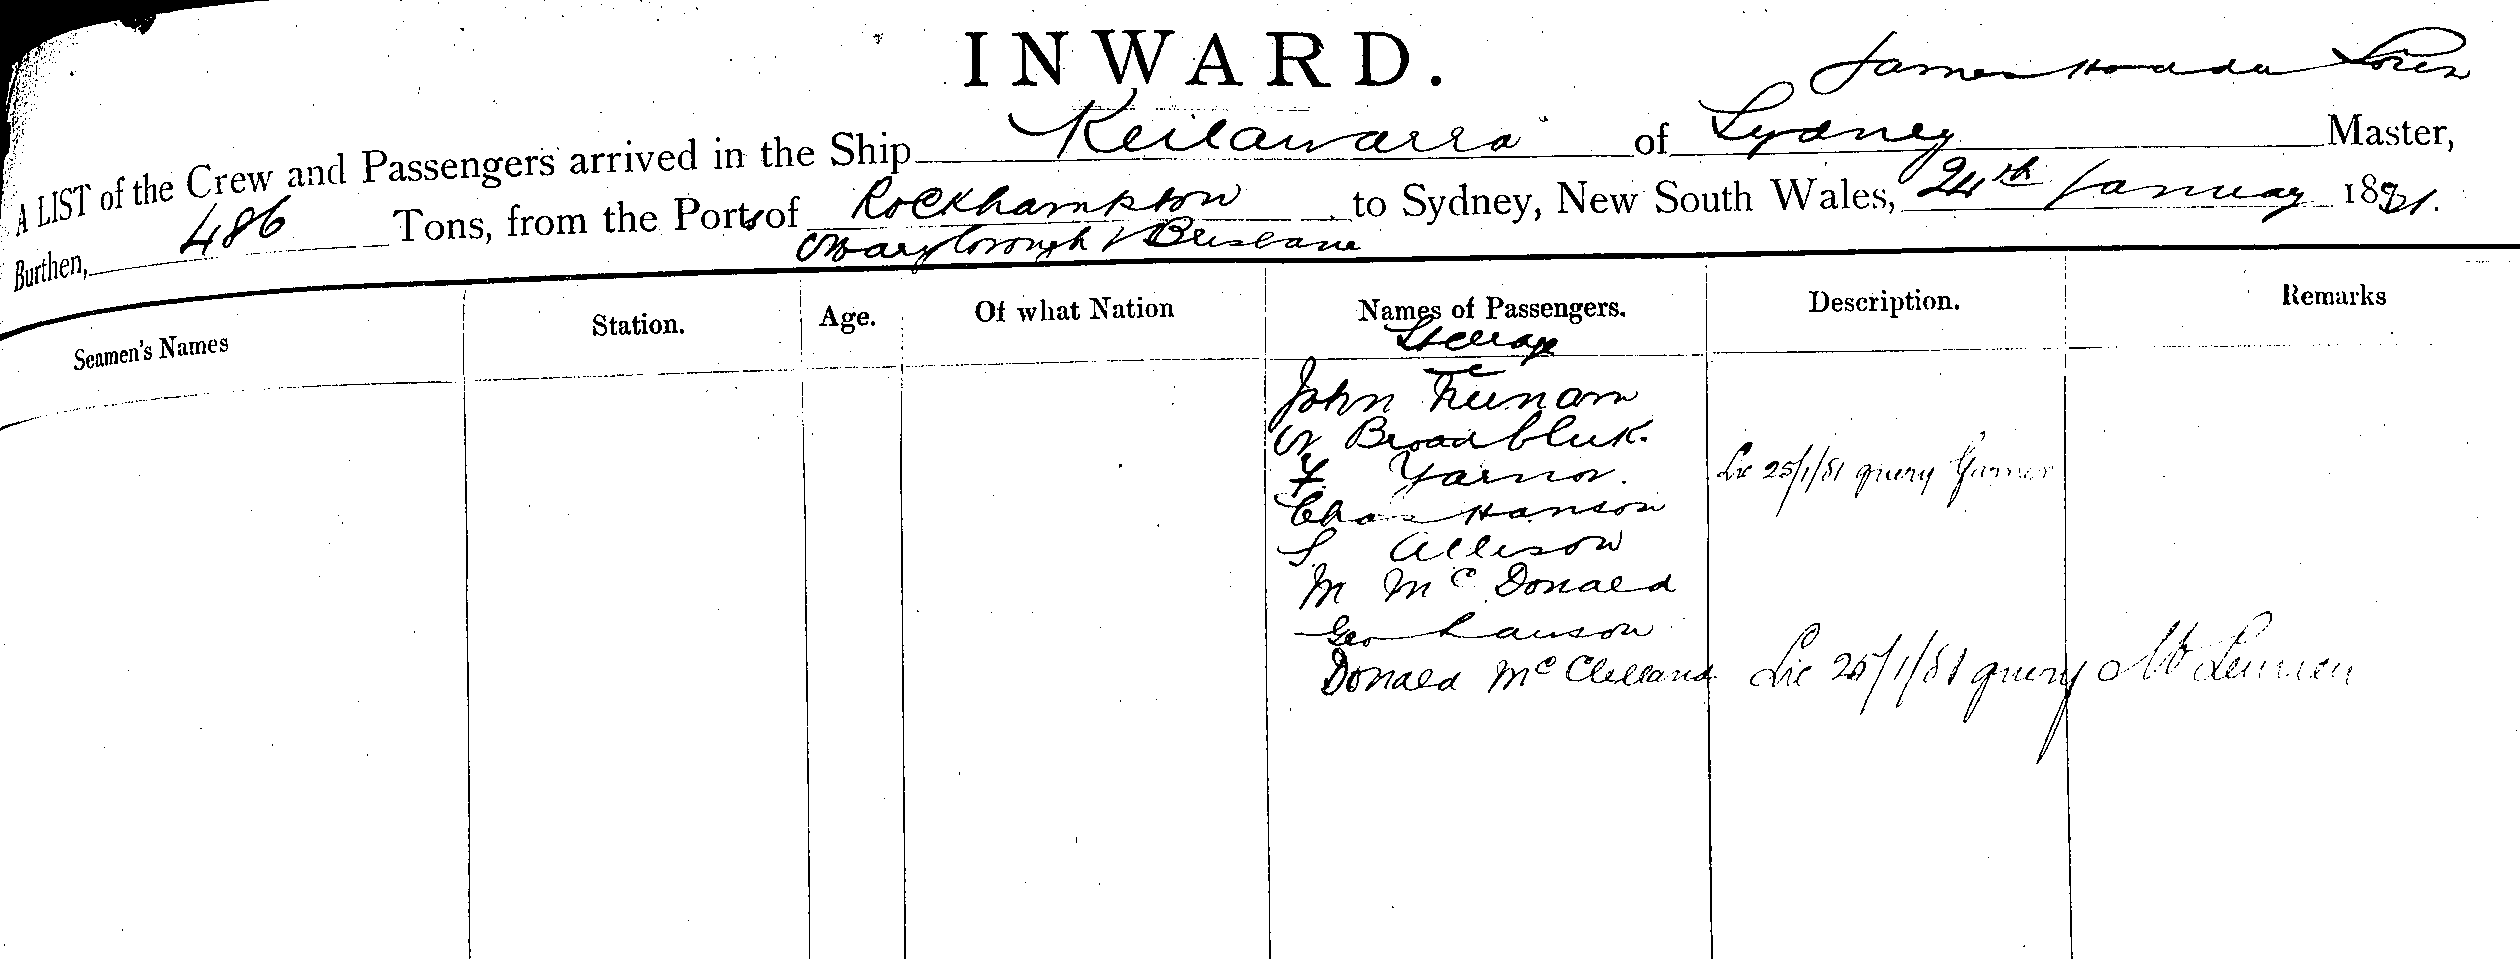 INWARD.
James
A LIST of the Crew and Passengers arrived in the Ship Keilawarra of Sydney Master,
Burthen, 486 Tons, from the Ports of Rockhampton to Sydney, New South Wales, 24th January 1881.
Maryborough & Brisbane
Seamen's Names Station. Age. Of what Nation Names of Passengers. Description. Remarks
Steerage
John
Broadbluk.
F. Yarnor. Lic 25/1/81 query Garner
Chas Hanson
S. Allison
M McDonald
Geo Lawson
Donald McClelland Lic 25/1/81 query McLennen